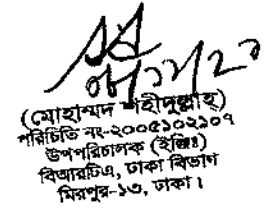 ০৮/১২/২১
(মোহাম্মদ শহীদুল্লাহ্)
পরিচিতি নং-২০০৫১০২১০৭
উপপরিচালক (ইঞ্জিঃ)
বিআরটিএ, ঢাকা বিভাগ
মিরপুর-১৩, ঢাকা।